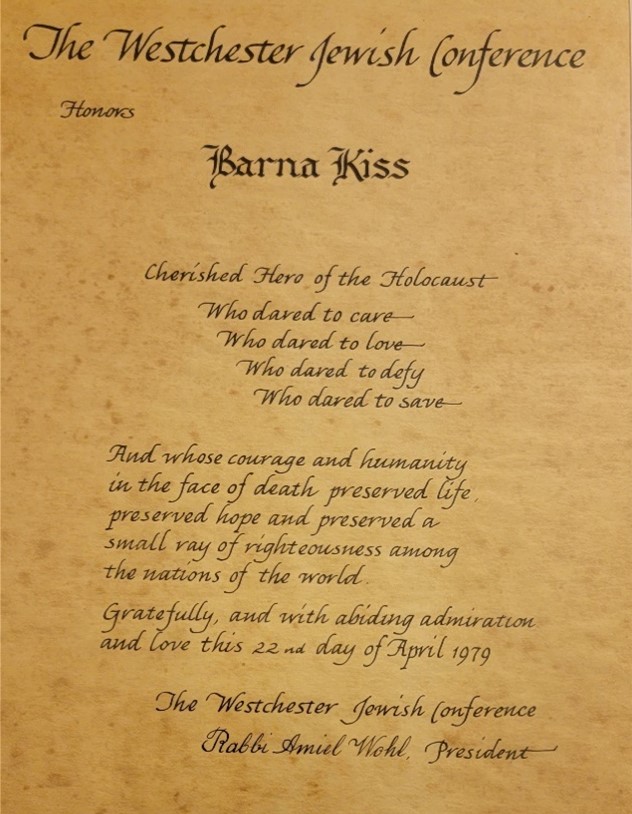 The Westchester Jewish Conference
Honors
Barna Kiss
Cherished Hero of the Holocaust
Who dared to care
Who dared to love
Who dared to defy
Who dared to save
And whose courage and humanity
in the face of death preserved life,
preserved hope and preserved a
small ray of righteousness among
the nations of the world.
Gratefully, and with abiding admiration
and love this 22nd day of April 1979
The Westchester Jewish Conference
Rabbi Amiel Wohl, President